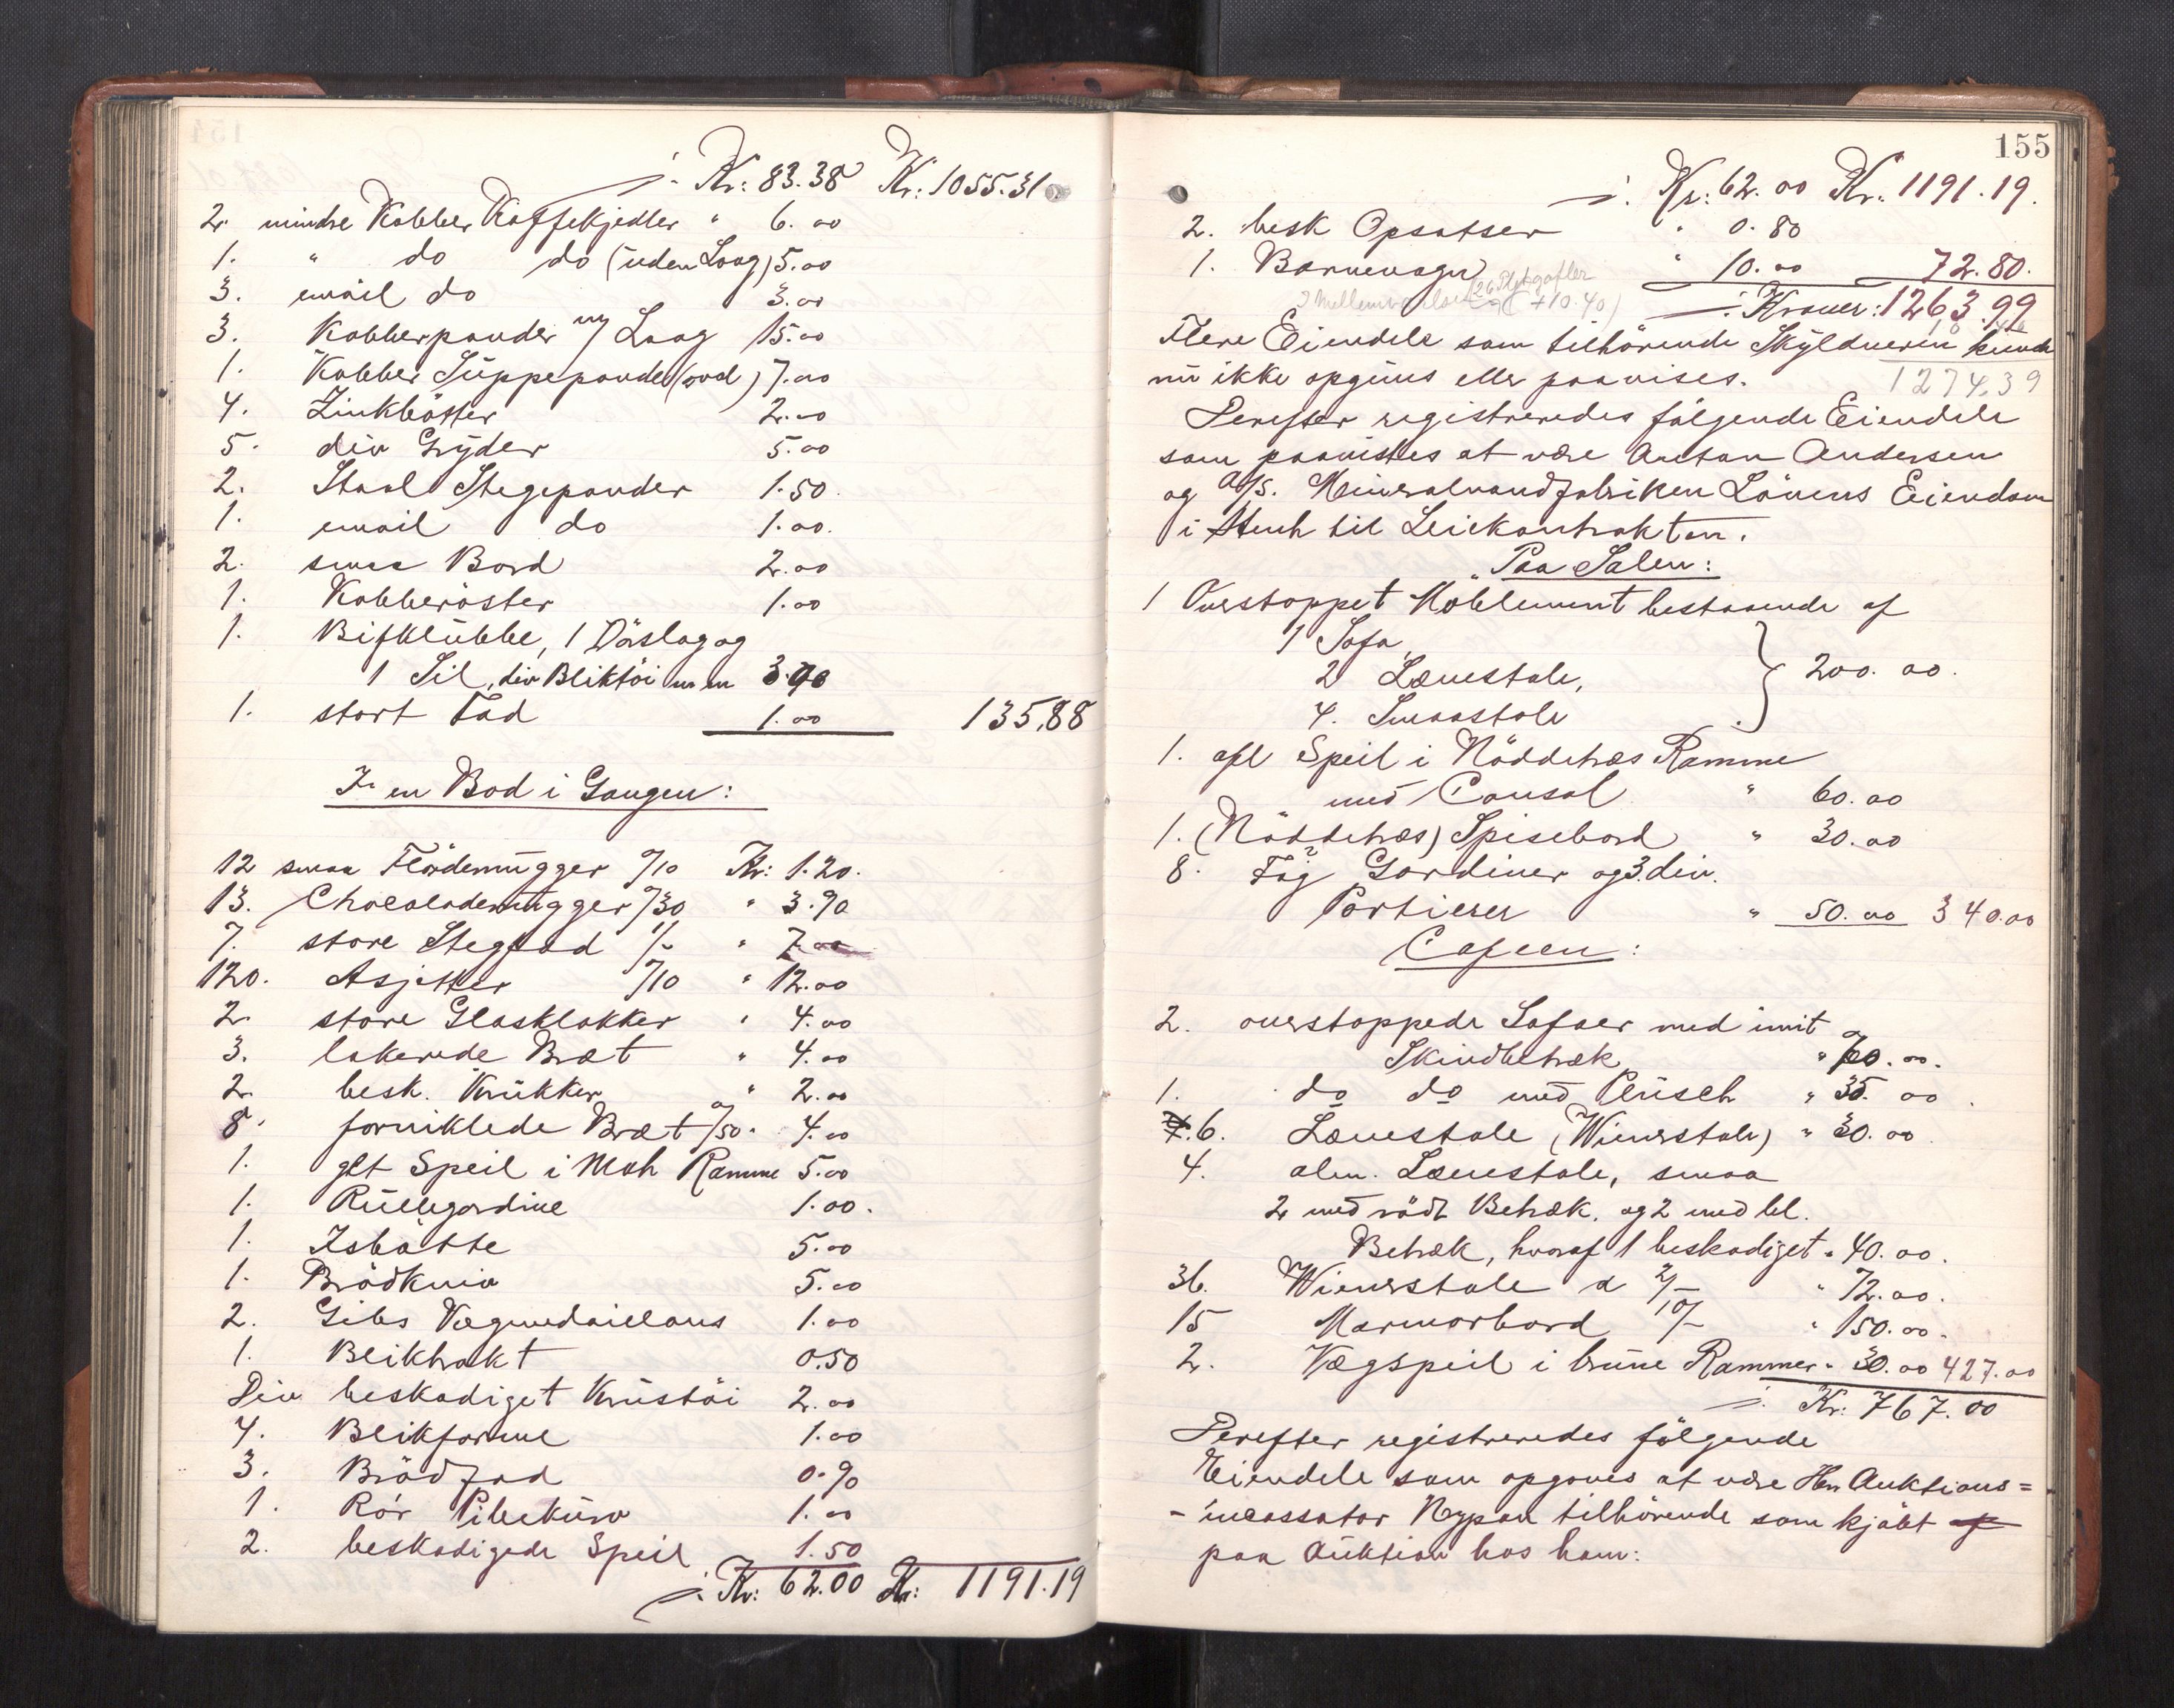 Kr: 83.38 Kr: 1055.31
2 mindre Kobber Kaffekjedler " 6.00
1. " do do (uden Laag) 5.00
3. email do 3.00
3. Kobberpander m/ Laag 15.00
1. Kobber Suppepande (oval) 7.00
4. Zinkbötter 2.00
5. div Gryder 5.00
2. Staal Stegepander 1.50
1. email do 1.00.
2. smaa Bord 2.00
1. Kobberöster 1.00
1. Bifklubbe, 1 Dörslag og
1 Sil, div Bliktöi m m 3.00
1. stort Fad 1.00 135,88
I en Bod i Gangen:
12 smaa Flödemugger 0/10 Kr: 1.20.
13. Chocolademugger 0/30 " 3.90
7. store Stegfad 1/- " 7.00
120. Asjetter 0/10 " 12.00
2. store Glasklokker " 4.00
3. lakerede Bræt " 4.00
2. besk. Krukker " 2.00
8. forniklede Bræt 0/50 " 4.00
1. glt Speil i Mah Ramme 5.00
1. Rullegardine 1.00.
1. Isbötte 5.00
1. Brödkniv 5.00
2. Gibs Vægmedaillons 1.00
1. Bliktrakt 0.50
Div beskadiget Krustöi 2.00
4. Blikforme 1.00
3. Brödfad 0.90
1. Rör Pibekurv 1.00
2. beskadigede Speil 1.50
Kr: 62.00 Kr: 1191.19
155
Kr: 62.00 Kr: 1191.19.
2. besk Opsatser " 0.80
1. Barnevogn " 10.00 72.80.
(26 gafler
(+ 10.40)
Kroner: 1263.99
Flere Eiendele som tilhörende Skyldneren kunde
nu ikke opgives eller paavises.
1274,39
Derefter registreredes fölgende Eiendele
som paavistes at være Anton Andersen
og A/S. Mineralvandfabriken Lövens Eiendom
i Henh til Leiekontrakten.
Paa Salen:
1 Overstoppet Møblement bestaaende af
1 Sofa,
2 Lænestole, } 200.00.
4. Smaastole
1. afl Speil i Nöddetræs Ramme
med Consol " 60.00
1. (Nöddetræs) Spisebord " 30.00
8. Fag Gardiner og 3 div.
Portierer " 50.00 340.00
Cafeen:
2. overstoppede Sofaer med imit
Skindbetræk " 70.00.
1. do do med Plüsch " 35.00.
7. 6. Lænestole (Wienerstole) " 30.00
4. alm. Lænestole, smaa
2 med rödt Betræk, og 2 med bl.
Betræk, hvoraf 1 beskadiget " 40.00.
36. Wienerstole a 2/- " 72.00.
15 Marmorbord 10/- " 150.00.
2. Vægspeil i brune Rammer " 30.00 427.00
Kr: 767.00
Derefter registreredes fölgende
Eiendele som opgaves at være Hr. Auktions=
-incassator Nypan tilhörende som kjöbt af
paa Auktion hos ham: